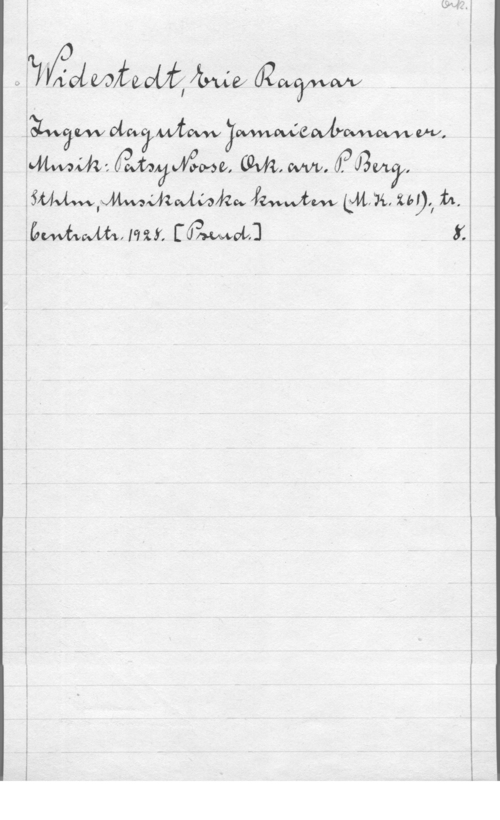 Ork.
Widestedt, Eric Ragnar
Ingen dag utan Jamaicabananer.
Musik: Patsy Noose. Ork. arr. P. Berg.
Sthlm, Musikaliska knuten (M.K. 261), tr.
Centraltr. 1928. [Pseud.] 8.